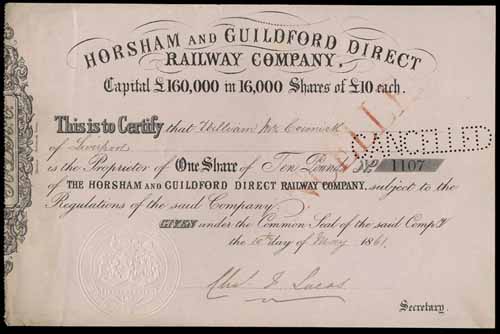 HORSHAM AND GUILDFORD DIRECT
RAILWAY COMPANY.
Capital £160,000 in 16,000 Shares of £10 each.
This is to Certify that William McCormick
of Liverpool
is the Proprietor of One Share of Ten Pounds No 1107
CANCELLED
of THE HORSHAM AND GUILDFORD DIRECT RAILWAY COMPANY, subject to the
Regulations of the said Company.
GIVEN under the Common Seal of the said Compy
the 10th day of May 1861.
Chas J Lucas
Secretary.